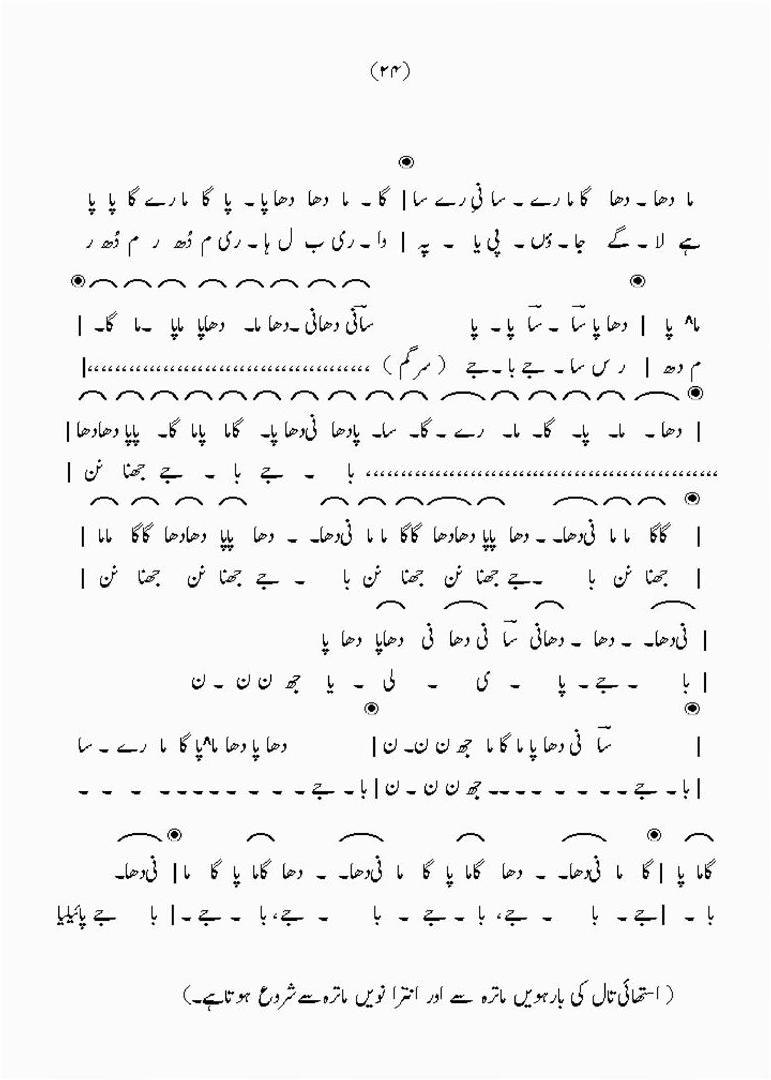 (۲۴)
ما دھا۔ دھا گا ما رے ۔ سا نیِ رے سا | گا۔ ما دھا دھا پا۔ پا گا ما رے گا پا پا
ہے لا۔ گے جا۔ ؤں۔ پی یا ۔ پہ | وا۔ ری ب ل ہا۔ ری م دُھ ر م دُھ ر
ما۸ پا | دھا پا سٓا ۔ سٓا پا۔ پا سٓانی دھانی ۔دھا ما۔ دھاپا ماپا ۔ما گا۔ |
م دھ | ر س سا۔ جے با۔جے (سرگم) ،،،،،،،،،،،،،،،،،،،،،،،،،،،،،،،،،،،،،،،|
| دھا۔ ما۔ پا۔ گا۔ ما۔ رے ۔گا۔ سا۔ پادھا نی‌دھا پا۔ گاما پاما گا۔ پاپا دھادھا|
،،،،،،،،،،،،،،،،،،،،،،،،،،،،،،،،،،،،،،،،،،،،،،،، با ۔ جے با ۔ جے جھنا نن |
| گاگا ما ما نی‌دھا۔ ۔ دھا پاپا دھادھا گاگا ما ما نی‌دھا۔ ۔ دھا پاپا دھادھا گاگا ماما |
| جھنا نن با ۔جے جھنا نن جھنا نن با ۔ جے جھنا نن جھنا نن |
| نی‌دھا۔ ۔ دھا ۔ دھانی سٓا نی دھا نی دھاپا دھا پا
| با ۔ جے۔ پا ۔ ی ۔ لی ۔ یا جھ ن ن ۔ ن
| سٓا نی دھا پا ما گا ما جھ ن ن۔ ن | دھا پا دھا ما۸پا گا ما رے ۔ سا
|با۔ جے ۔ ۔ ۔ ۔ ۔ ۔۔ جھ ن ن ۔ ن |با۔ جے۔ ۔ ۔ ۔ ۔ ۔۔۔۔ ۔ ۔ ۔ ۔
گاما پا | گا ما نی‌دھا۔ ۔ دھا گاما پا گا ما نی‌دھا۔ ۔ دھا گاما پا گا ما |نی‌دھا۔
با ۔ |جے ۔ با ۔ جے، با ۔ جے ۔ با ۔ جے، با ۔ جے ۔| با جے پائیلیا
(استھائی تال کی بارہویں ماترہ سے اور انترا نویں ماترہ سے شروع ہوتاہے۔)